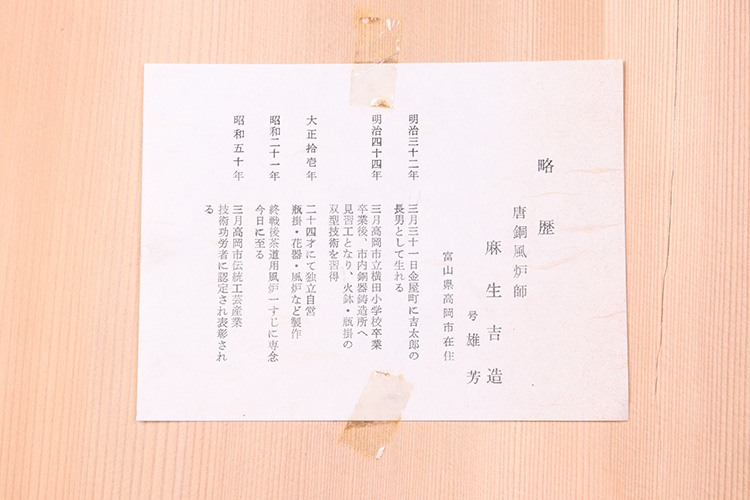 略歴
唐銅風炉師
麻生吉造
号 雄芳
富山県高岡市在住
明治三十二年 三月三十一日金屋町に吉太郎の
長男として生れる
明治四十四年 三月高岡市立横田小学校卒業
卒業後、市内銅器鋳造所へ
見習工となり、火鉢・瓶掛の
双型技術を習得
大正拾壱年 二十四才にて独立自営
瓶掛・花器・風炉など製作
昭和二十一年 終戦後茶道用風炉一すじに専念
今日に至る
昭和五十年 三月高岡市伝統工芸産業
技術功労者に認定され表彰され
る